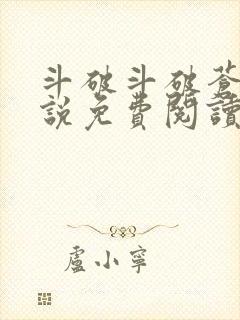 斗破斗破蒼
說免費閱讀
盧小寧